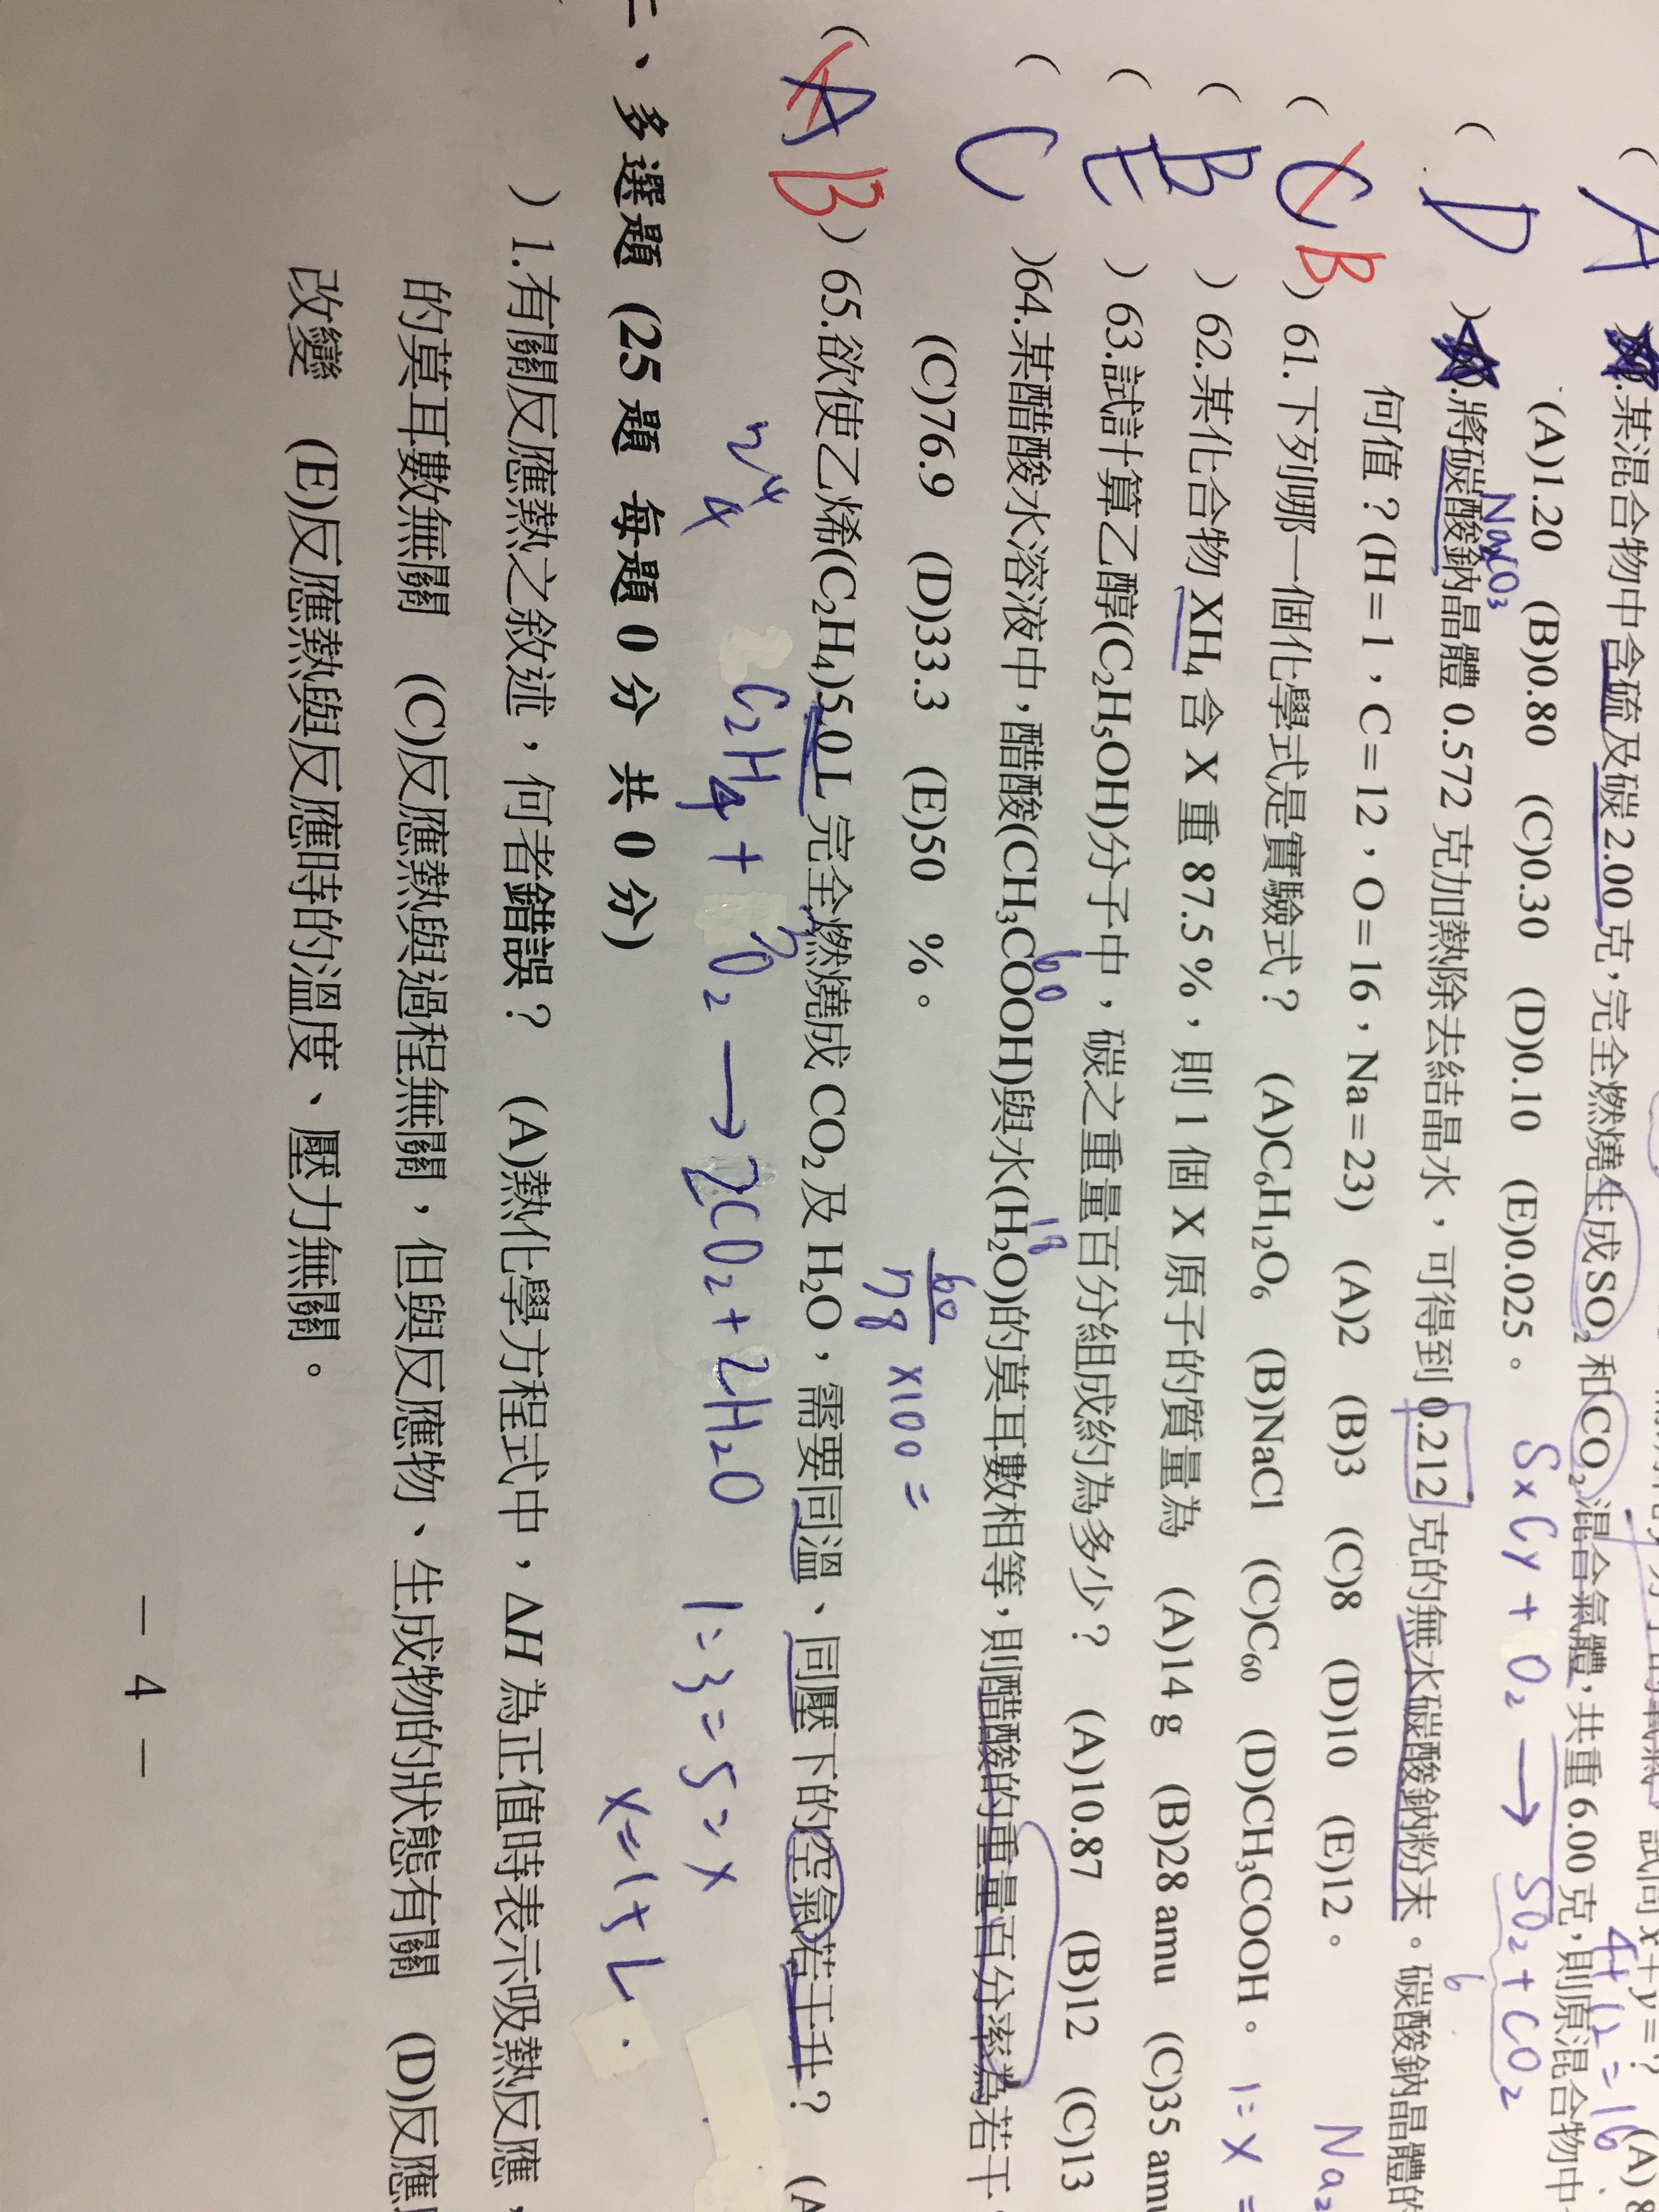 ( A ) .某混合物中含硫及碳 2.00 克,完全燃燒生成 SO₂ 和 CO₂ 混合氣體,共重 6.00 克,則原混合物中
(A)1.20 (B)0.80 (C)0.30 (D)0.10 (E)0.025。 SxCy + O₂ → SO₂ + CO₂
Na₂CO₃
( D ) .將碳酸鈉晶體 0.572 克加熱除去結晶水,可得到 0.212 克的無水碳酸鈉粉末。碳酸鈉晶體的
何值?(H=1,C=12,O=16,Na=23) (A)2 (B)3 (C)8 (D)10 (E)12。 Na₂
( C B ) 61.下列哪一個化學式是實驗式? (A)C₆H₁₂O₆ (B)NaCl (C)C₆₀ (D)CH₃COOH。 1:X =
( B ) 62.某化合物 XH₄ 含 X 重 87.5 %,則 1 個 X 原子的質量為 (A)14 g (B)28 amu (C)35 amu
( E ) 63.試計算乙醇(C₂H₅OH)分子中,碳之重量百分組成約為多少? (A)10.87 (B)12 (C)13
60 18
( C )64.某醋酸水溶液中,醋酸(CH₃COOH)與水(H₂O)的莫耳數相等,則醋酸的重量百分率為若干
(C)76.9 (D)33.3 (E)50 %。
60/78 ×100 =
( A B ) 65.欲使乙烯(C₂H₄)5.0 L 完全燃燒成 CO₂ 及 H₂O,需要同溫、同壓下的空氣若干升? (A
C₂H₄ + 3O₂ → 2CO₂ + 2H₂O 1:3=5:x
x=15 L.
二、多選題 (25 題 每題 0 分 共 0 分)
) 1.有關反應熱之敘述,何者錯誤? (A)熱化學方程式中,ΔH 為正值時表示吸熱反應,
的莫耳數無關 (C)反應熱與過程無關,但與反應物、生成物的狀態有關 (D)反應
改變 (E)反應熱與反應時的溫度、壓力無關。
- 4 -